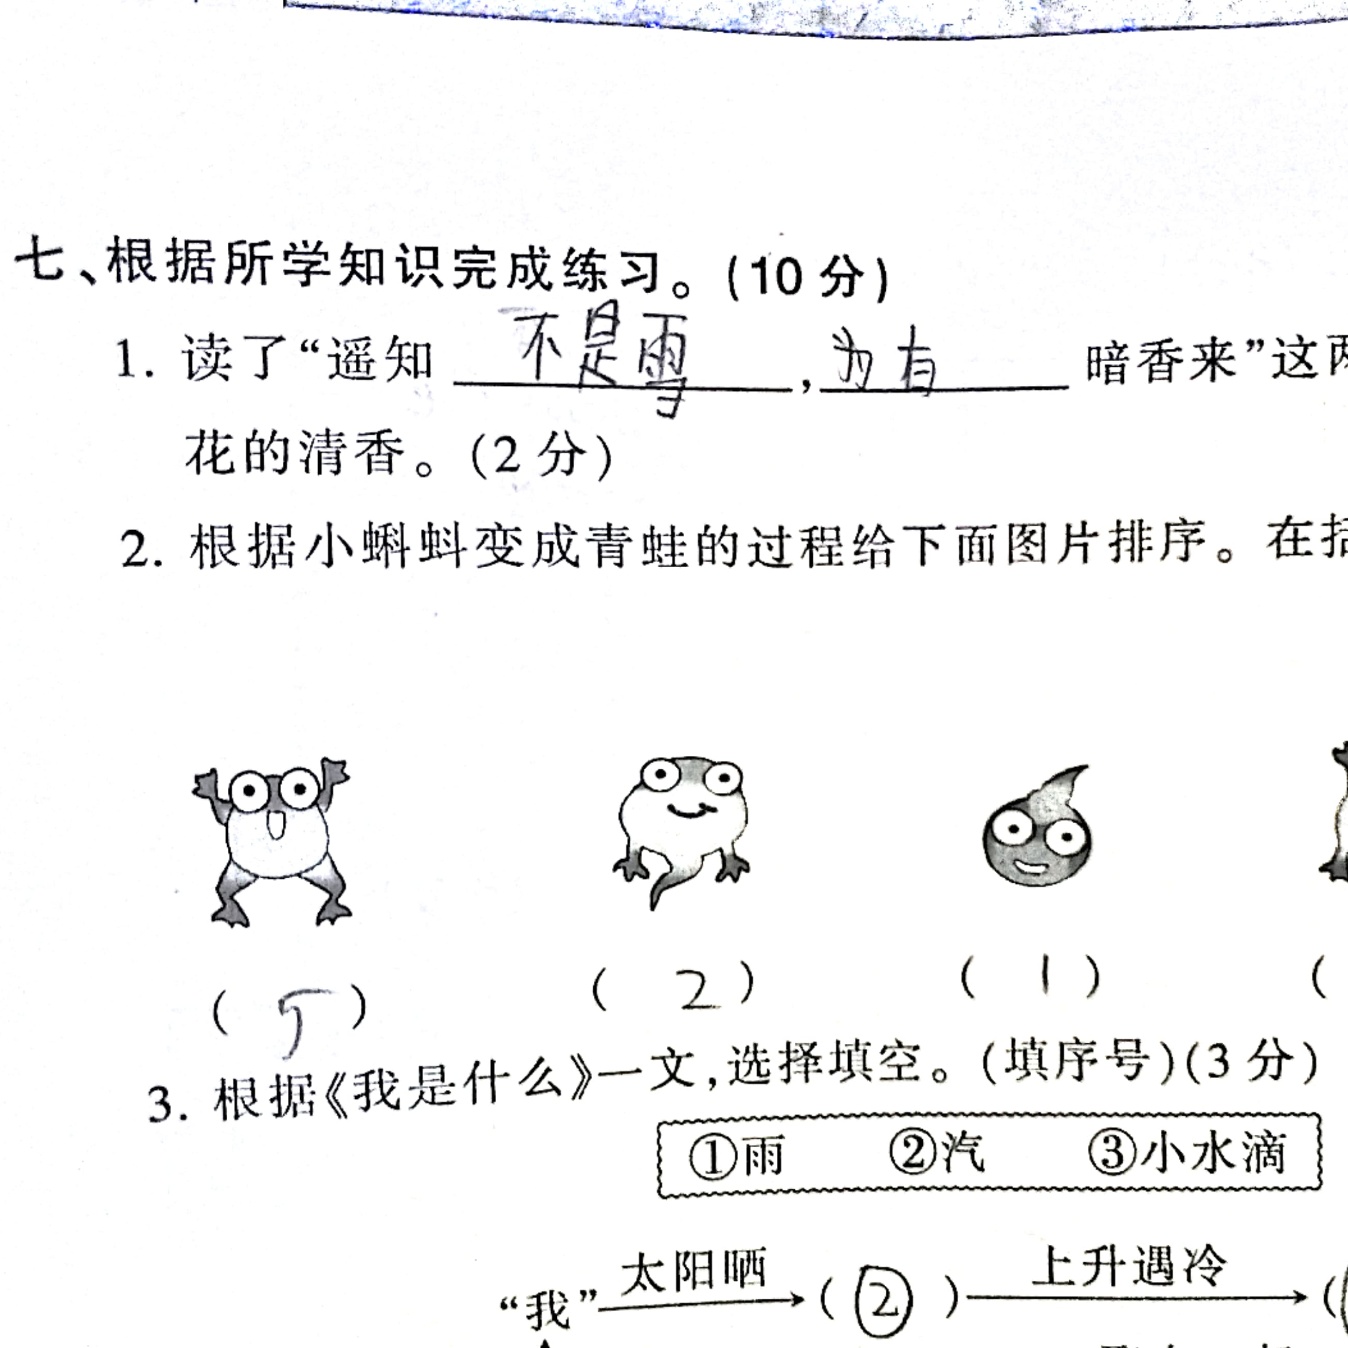 七、根据所学知识完成练习。(10分)
1. 读了“遥知 不是雪,为有 暗香来”这两
花的清香。(2分)
2. 根据小蝌蚪变成青蛙的过程给下面图片排序。在括
( 5 ) ( 2 ) ( 1 ) (
3. 根据《我是什么》一文,选择填空。(填序号)(3分)
①雨 ②汽 ③小水滴
太阳晒 上升遇冷
“我” ( ② ) (